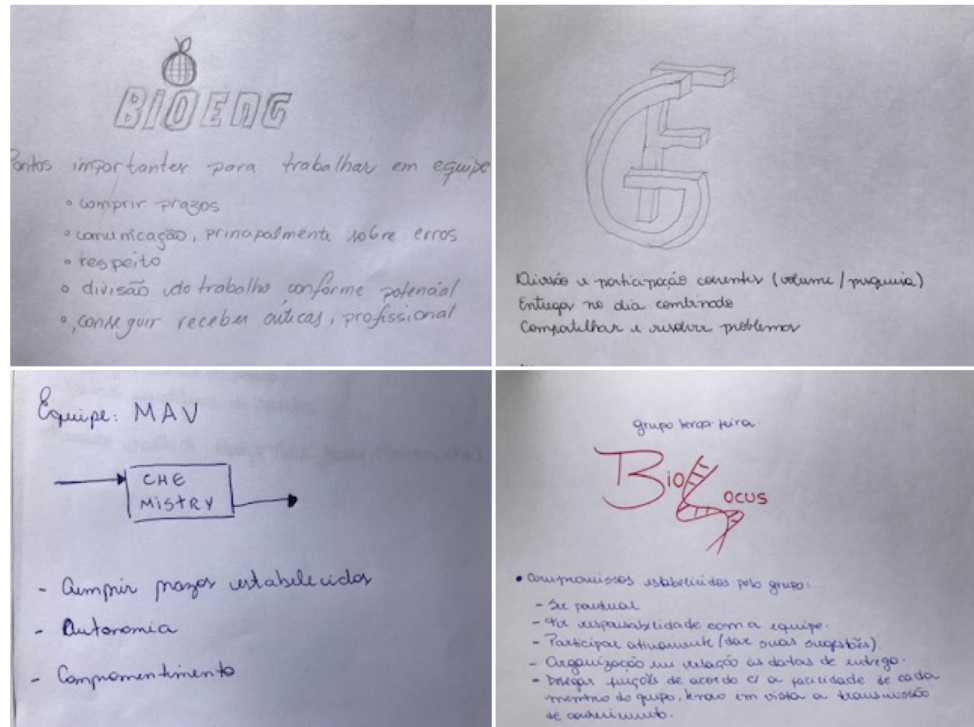 BIOENG
Pontos importantes para trabalhar em equipe
• comprir prazos
• comunicação, principalmente sobre erros
• respeito
• divisão do trabalho conforme potencial
• conseguir receber críticas, profissional
GF
Divisão e participação coerentes (volume / pesquisa)
Entregar no dia combinado
Compartilhar e resolver problemas
Equipe: MAV
CHE
MISTRY
- Cumprir prazos estabelecidos
- Autonomia
- Compromentimento
grupo terça-feira
BioLocus
• Compromissos estabelecidos pelo grupo:
- Ser pontual
- Ter responsabilidade com a equipe.
- Participar ativamente (dar suas sugestões).
- Organização em relação às datas de entrega.
- Delegar funções de acordo c/ a facilidade de cada
membro do grupo, tendo em vista a transmissão
de conhecimento.